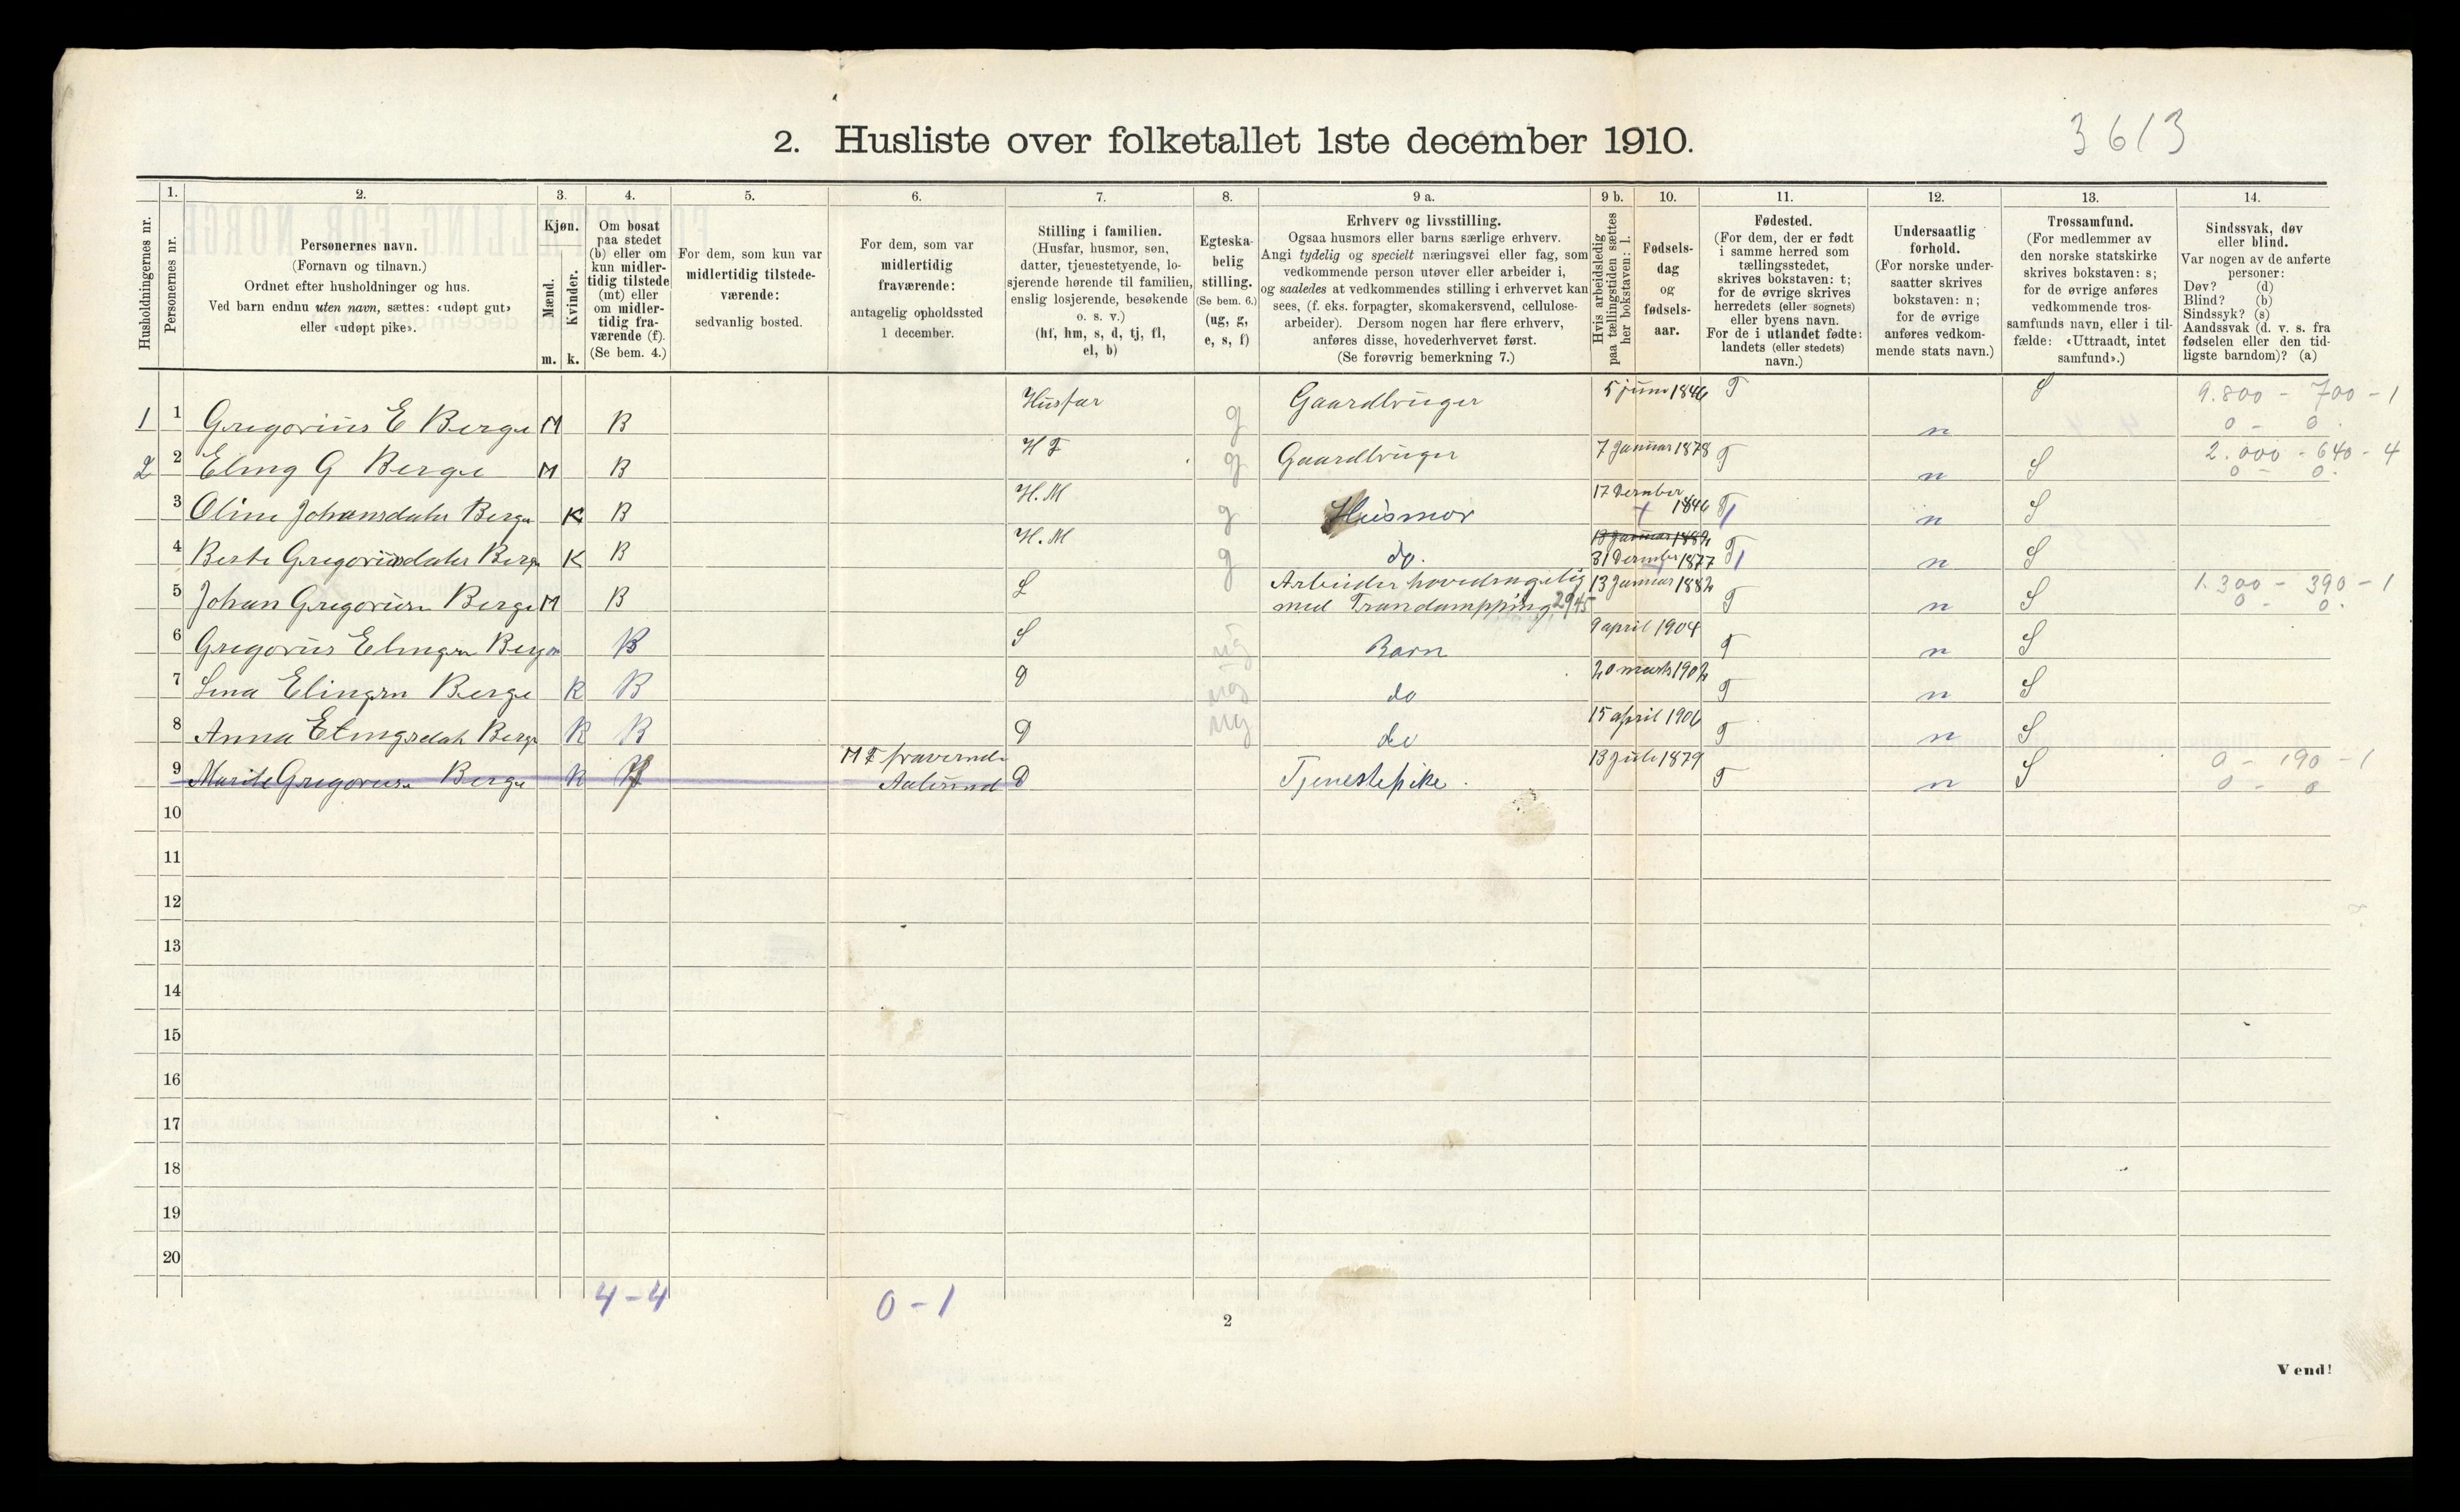 3613
2. Husliste over folketallet 1ste december 1910.
Husholdningernes nr.
1. Personernes nr.
2. Personernes navn.
(Fornavn og tilnavn.)
Ordnet efter husholdninger og hus.
Ved barn endnu uten navn, sættes: «udøpt gut»
eller «udøpt pike».
3. Kjøn.
Mænd. m.
Kvinder. k.
4. Om bosat
paa stedet
(b) eller om
kun midler-
tidig tilstede
(mt) eller
om midler-
tidig fra-
værende (f).
(Se bem. 4.)
5. For dem, som kun var
midlertidig tilstede-
værende:
sedvanlig bosted.
6. For dem, som var
midlertidig
fraværende:
antagelig opholdssted
1 december.
7. Stilling i familien.
(Husfar, husmor, søn,
datter, tjenestetyende, lo-
sjerende hørende til familien,
enslig losjerende, besøkende
o. s. v.)
(hf, hm, s, d, tj, fl,
el, b)
8. Egteska-
belig
stilling.
(Se bem. 6.)
(ug, g,
e, s, f)
9 a. Erhverv og livsstilling.
Ogsaa husmors eller barns særlige erhverv.
Angi tydelig og specielt næringsvei eller fag, som
vedkommende person utøver eller arbeider i,
og saaledes at vedkommendes stilling i erhvervet kan
sees, (f. eks. forpagter, skomakersvend, cellulose-
arbeider). Dersom nogen har flere erhverv,
anføres disse, hovederhvervet først.
(Se forøvrig bemerkning 7.)
9 b. Hvis arbeidsledig
paa tællingstiden sættes
her bokstaven: l.
10. Fødsels-
dag
og
fødsels-
aar.
11. Fødested.
(For dem, der er født
i samme herred som
tællingsstedet,
skrives bokstaven: t;
for de øvrige skrives
herredets (eller sognets)
eller byens navn.
For de i utlandet fødte:
landets (eller stedets)
navn.)
12. Undersaatlig
forhold.
(For norske under-
saatter skrives
bokstaven: n;
for de øvrige
anføres vedkom-
mende stats navn.)
13. Trossamfund.
(For medlemmer av
den norske statskirke
skrives bokstaven: s;
for de øvrige anføres
vedkommende tros-
samfunds navn, eller i til-
fælde: «Uttraadt, intet
samfund».)
14. Sindssvak, døv
eller blind.
Var nogen av de anførte
personer:
Døv? (d)
Blind? (b)
Sindssyk? (s)
Aandssvak (d. v. s. fra
fødselen eller den tid-
ligste barndom)? (a)
1 1 Gregorius E Berge M B Husfar g Gaardbruger 5 juni 1846 T n S 9.800 - 700 - 1
0 - 0.
2 2 Eling G Berge M B H F g Gaardbruger 7 Januar 1878 T n S 2.000 - 640 - 4
0 - 0.
3 Oline Johansdatr Berge K B H. M g Husmor 17 Desember 1846 T n S
4 Berte Gregoriusdatr Berge K B H. M g do. 13 Januar 1882
31 Desember 1877 T n S
5 Johan Gregoriusn Berge M B L Arbeider hovedsagelig
med Trandampping 2945 13 Januar 1882 T n S 1.300 - 390 - 1
0 - 0.
6 Gregorius Elingsn Berge m B S ug Barn 9 april 1904 T n S
7 Lina Elingsn Berge K B D ug do 20 marts 1902 T n S
8 Anna Elingsdatr Berge K B D ug do 15 april 1906 T n S
9 Marite Gregoriusn Berge K f M F fraverende
Aalesund D Tjenestepike. 13 juli 1879 T n S 0 - 190 - 1
0 - 0
10
11
12
13
14
15
16
17
18
19
20
4 - 4 0 - 1
2
Vend!